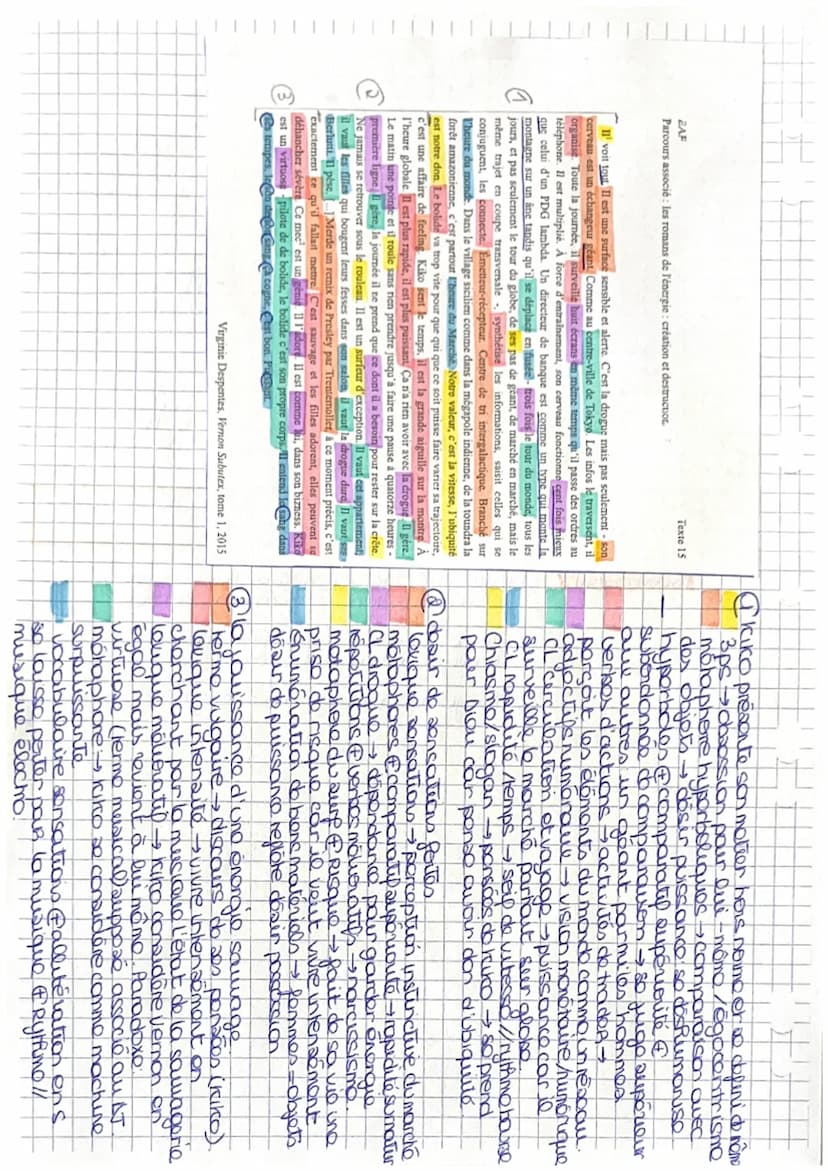 EAF
Texte 15
Parcours associé : les romans de l'énergie : création et destruction.
Il¹ voit tout. Il est une surface sensible et alerte. C'est la drogue mais pas seulement - son
cerveau est un échangeur géant. Comme au centre-ville de Tokyo. Les infos le traversent, il
organise. Toute la journée, il surveille huit écrans en même temps qu'il passe des ordres au
téléphone. Il est multiplié. À force d'entraînement, son cerveau fonctionne cent fois mieux
que celui d'un PDG lambda. Un directeur de banque est comme un type qui monte la
montagne sur un âne tandis qu'il se déplace en fusée - trois fois le tour du monde, tous les
jours, et pas seulement le tour du globe, de ses pas de géant, de marché en marché, mais le
même trajet en coupe transversale -, synthétise les informations, saisit celles qui se
conjuguent, les connecte. Émetteur-récepteur. Centre de tri intergalactique. Branché sur
l'heure du monde. Dans le village sicilien comme dans la mégapole indienne, de la toundra la
forêt amazonienne, c'est partout l'heure du Marché. Notre valeur, c'est la vitesse, l'ubiquité
est notre don. Le bolide va trop vite pour que qui que ce soit puisse faire varier sa trajectoire,
c'est une affaire de feeling. Kiko sent le temps, il est la grande aiguille sur la montre. À
l'heure globale. Il est plus rapide, il est plus puissant. Ça n'a rien avoir avec la drogue. Il gère.
Le matin une pointe et il roule sans rien prendre jusqu'à faire une pause à quatorze heures -
première ligne. Il gère, la journée il ne prend que ce dont il a besoin pour rester sur la crête.
Ne jamais se retrouver sous le rouleau. Il est un surfeur d'exception. Il vaut cet appartement,
il vaut les filles qui bougent leurs fesses dans son salon, il vaut la drogue dure. Il vaut ses
Berlutti. Il pèse. [...] Merde un remix de Presley par Trentemoller, à ce moment précis, c'est
exactement ce qu'il fallait mettre. C'est sauvage et les filles adorent, elles peuvent se
déhancher sévère. Ce mec² est un génie. Il l'adore. Il est comme lui, dans son bizness. Kiko
est un virtuose -pilote de de bolide, le bolide c'est son propre corps. Il entend le sang dans
ses tempes, le son de son sang. Ça cogne. C'est bon. Puissant.
Virginie Despentes, Vernon Subutex, tome 1, 2015
①
②
③
① Kiko présente son métier hors norme et se défini de même
3ps → obsession pour lui-même / égocentrisme
métaphore hyperboliques → comparaison avec
des objets → désir puissance, se déshumanise
— hyperboles ⊕ comparatif supériorité ⊕
subordonnée de comparaison → se juge supérieur
aux autres, un géant parmi les hommes
verbes d'actions → activités de trader →
perçoit les éléments du monde comme un réseau
adjectifs numéraux → vision monétaire/numérique
CL circulation et voyage → puissance car il
surveille le marché partout sur globe
CL rapidité / temps → soif de vitesse // rythme bourse
Chiasme / slogan → pensées de Kiko → se prend
pour Dieu car pense avoir don d'ubiquité
② désir de sensations fortes
lexique sensations → perception instinctive du marché
métaphores ⊕ comparatif supériorité → rapidité surnatur
CL drogue → dépendance pour garder énergie
répétitions ⊕ verbes mélioratifs → narcissisme
métaphore du surf ⊕ risque → fait de sa vie une
prise de risque car il veut vivre intensément
énumération de biens matériels → femmes = objets
désir de puissance reflète désir possession
③ La jouissance d'une énergie sauvage
terme vulgaire → discours de ses pensées (Kiko)
lexique intensité → vivre intensément en
cherchant par la musique l'état de la sauvagerie
lexique mélioratif → Kiko considère Vernon en
égal mais revient à lui même. Paradoxe
virtuose (terme musical supposé associé au DJ
métaphore → Kiko se considère comme machine
surpuissante
vocabulaire sensations ⊕ allitération en s
se laisse porter par la musique ⊕ Rythme //
musique électro.